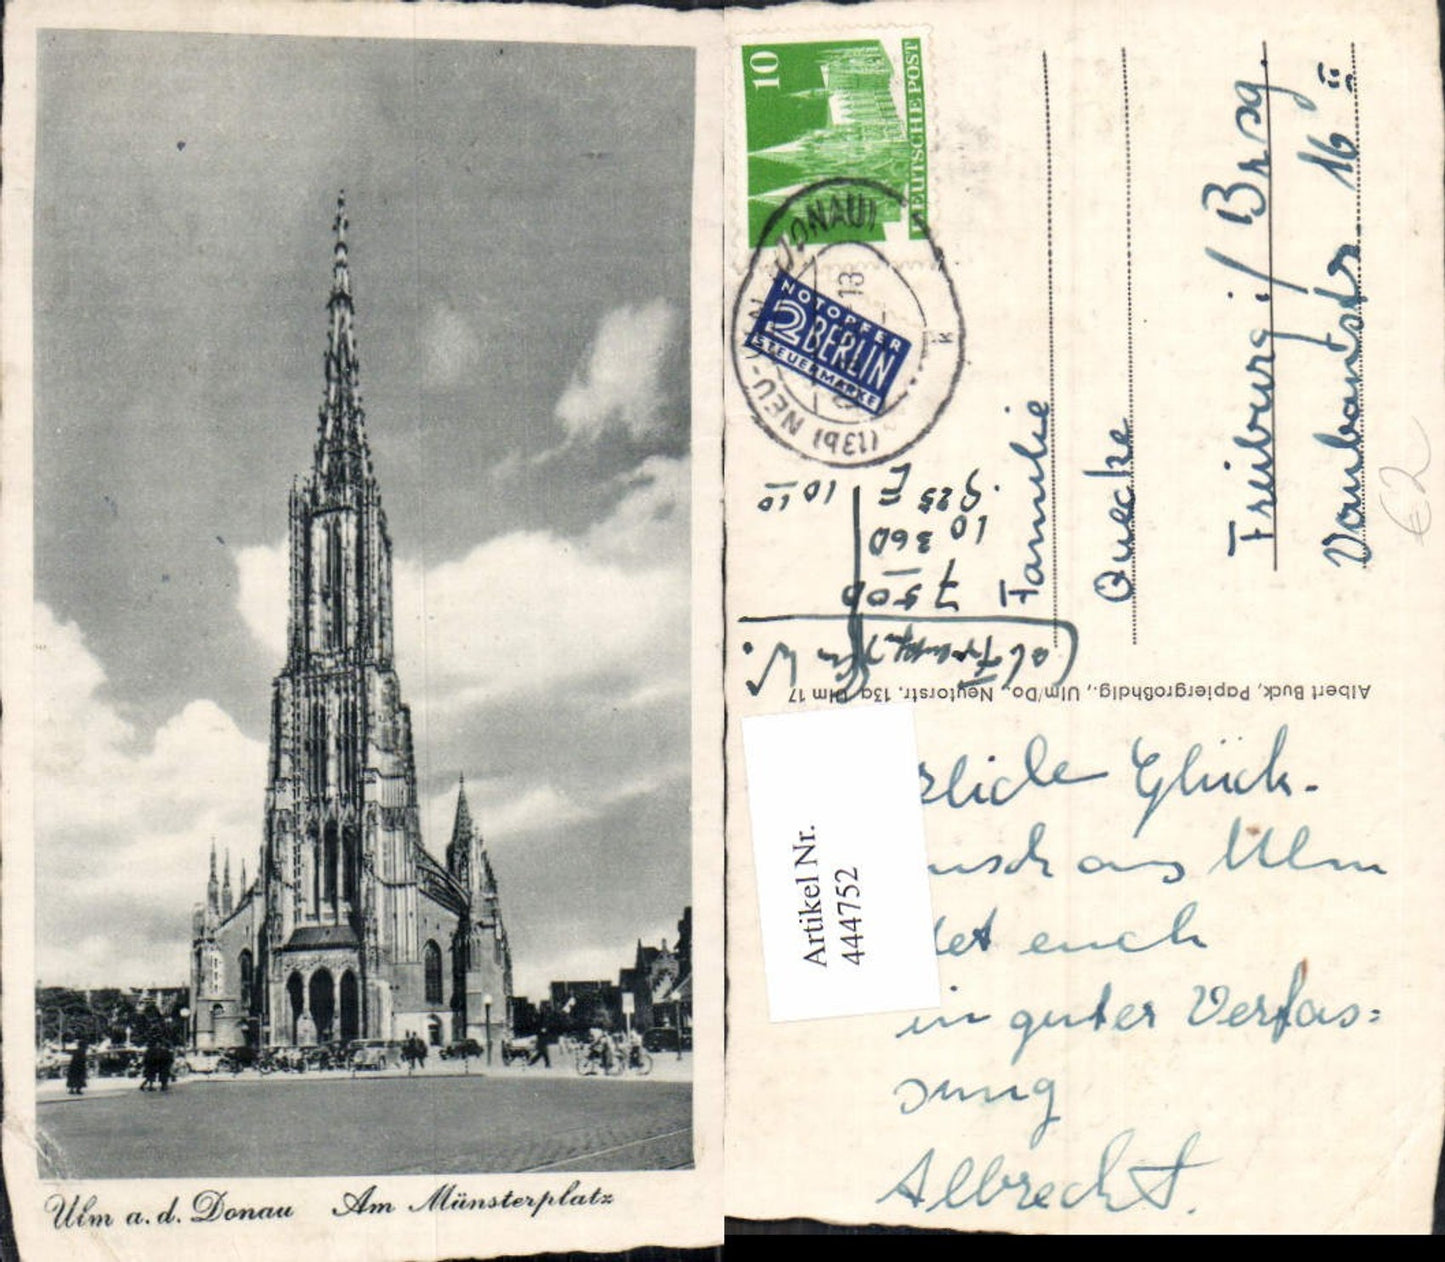 Ulm a. d. Donau Am Münsterplatz
10
DEUTSCHE POST
(13b) NEU-ULM (DONAU)
13
k
NOTOPFER
2 BERLIN
STEUERMARKE
Familie
Quecke
Freiburg i/Brsg.
Vaubanstr 16 II
7 500
10 360
9 25
10 10
Albert Buck, Papiergroßhdlg., Ulm/Do., Neutorstr. 13a Ulm 17
Artikel Nr.
444752
rliche Glück-
unsch aus Ulm
det euch
in guter Verfas=
sung
Albrecht.
€2